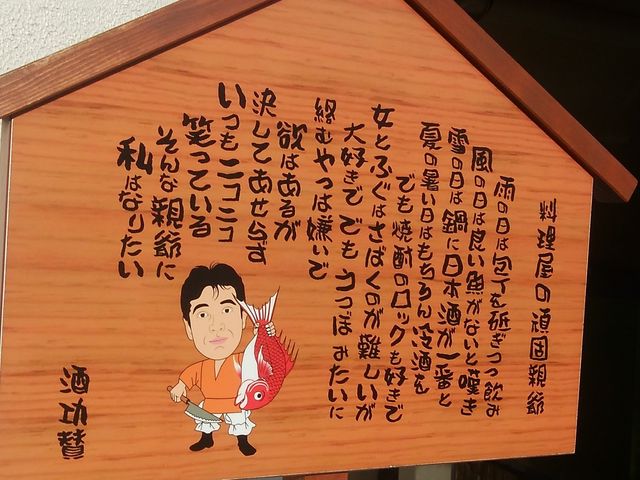 料理屋の頑固親爺
雨の日は包丁を砥ぎつつ飲み
風の日は良い魚がないと嘆き
雪の日は鍋に日本酒が一番と
夏の暑い日はもちろん冷酒を
でも焼酎のロックも好きで
女とふぐはさばくのが難しいが
大好きで でも うつぼみたいに
絡むやつは嫌いで
欲はあるが
決してあせらず
いつもニコニコ
笑っている
そんな親爺に
私はなりたい
酒功賛